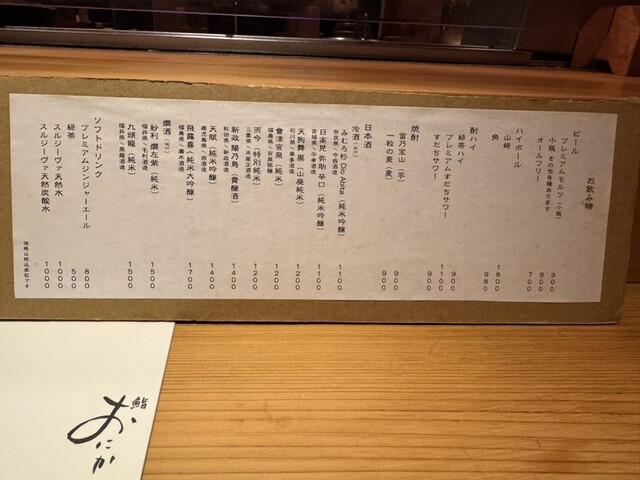 お飲み物
ビール
プレミアムモルツ(小瓶) 900
小瓶 その他各種あります 900
オールフリー 700
ハイボール
山崎 1800
角 980
酎ハイ
緑茶ハイ 900
プレミアムすだちサワー 1100
すだちサワー 900
焼酎
富乃宝山(芋) 900
一粒の麦(麦) 900
日本酒
冷酒
みむろ杉 Dio Abita(純米吟醸) 1100
奈良県/今西酒造
日高見 弥助 辛口(純米吟醸) 1100
宮城県/平孝酒造
天狗舞 黒(山廃純米) 1200
石川県/車多酒造
會津宮泉(純米) 1200
福島県/宮泉銘醸
而今(特別純米) 1200
三重県/木屋正酒造
新政 陽乃鳥(貴醸酒) 1400
秋田県/新政酒造
天賦(純米吟醸) 1400
鹿児島県/西酒造
飛露喜(純米大吟醸) 1700
福島県/廣木酒造
燗酒
紗利 燗左衛(純米) 1500
福井県/毛利酒造
九頭龍(純米) 1500
福井県/黒龍酒造
ソフトドリンク
プレミアムジンジャーエール 800
緑茶 500
スルジーヴァ天然水 1000
スルジーヴァ天然炭酸水 1000
価格は税込表記です
鮨
おにか